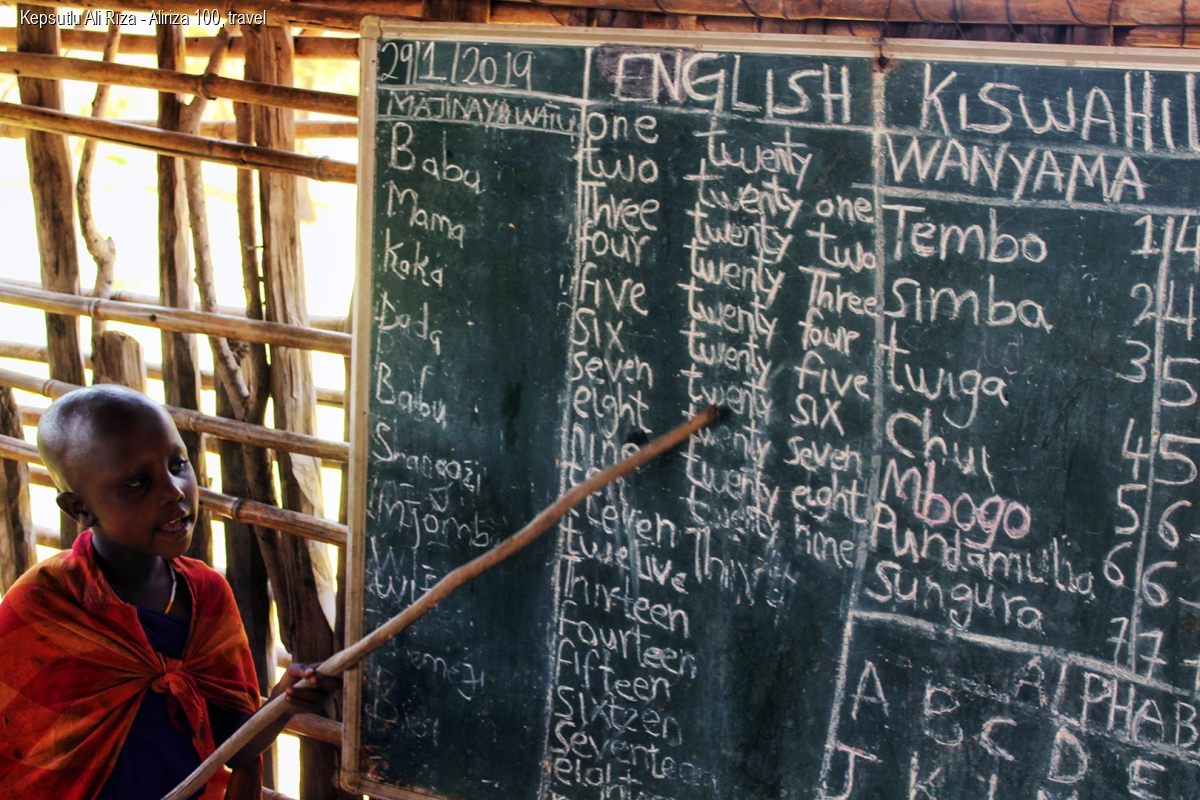 Kepsutlu Ali Rıza - Aliriza 100, travel
29/1/2019
MAJINAYAWATU
Babu
Mama
Kaka
Dada
Babu
Shangazi
Mjomba
ENGLISH
one
two
Three
four
five
six
seven
eight
nine
eleven
twelve
Thirteen
fourteen
fifteen
sixteen
seventeen
twenty
twenty one
twenty two
twenty Three
twenty four
twenty five
twenty six
twenty seven
twenty eight
twenty nine
Thirty
KISWAHIL
WANYAMA
Tembo 1 4
Simba 2 4
twiga 3 5
Chui 4 5
Mbogo 5 6
Pundamulia 6 6
Sungura 7 7
ALPHAB
A B C D E
J K